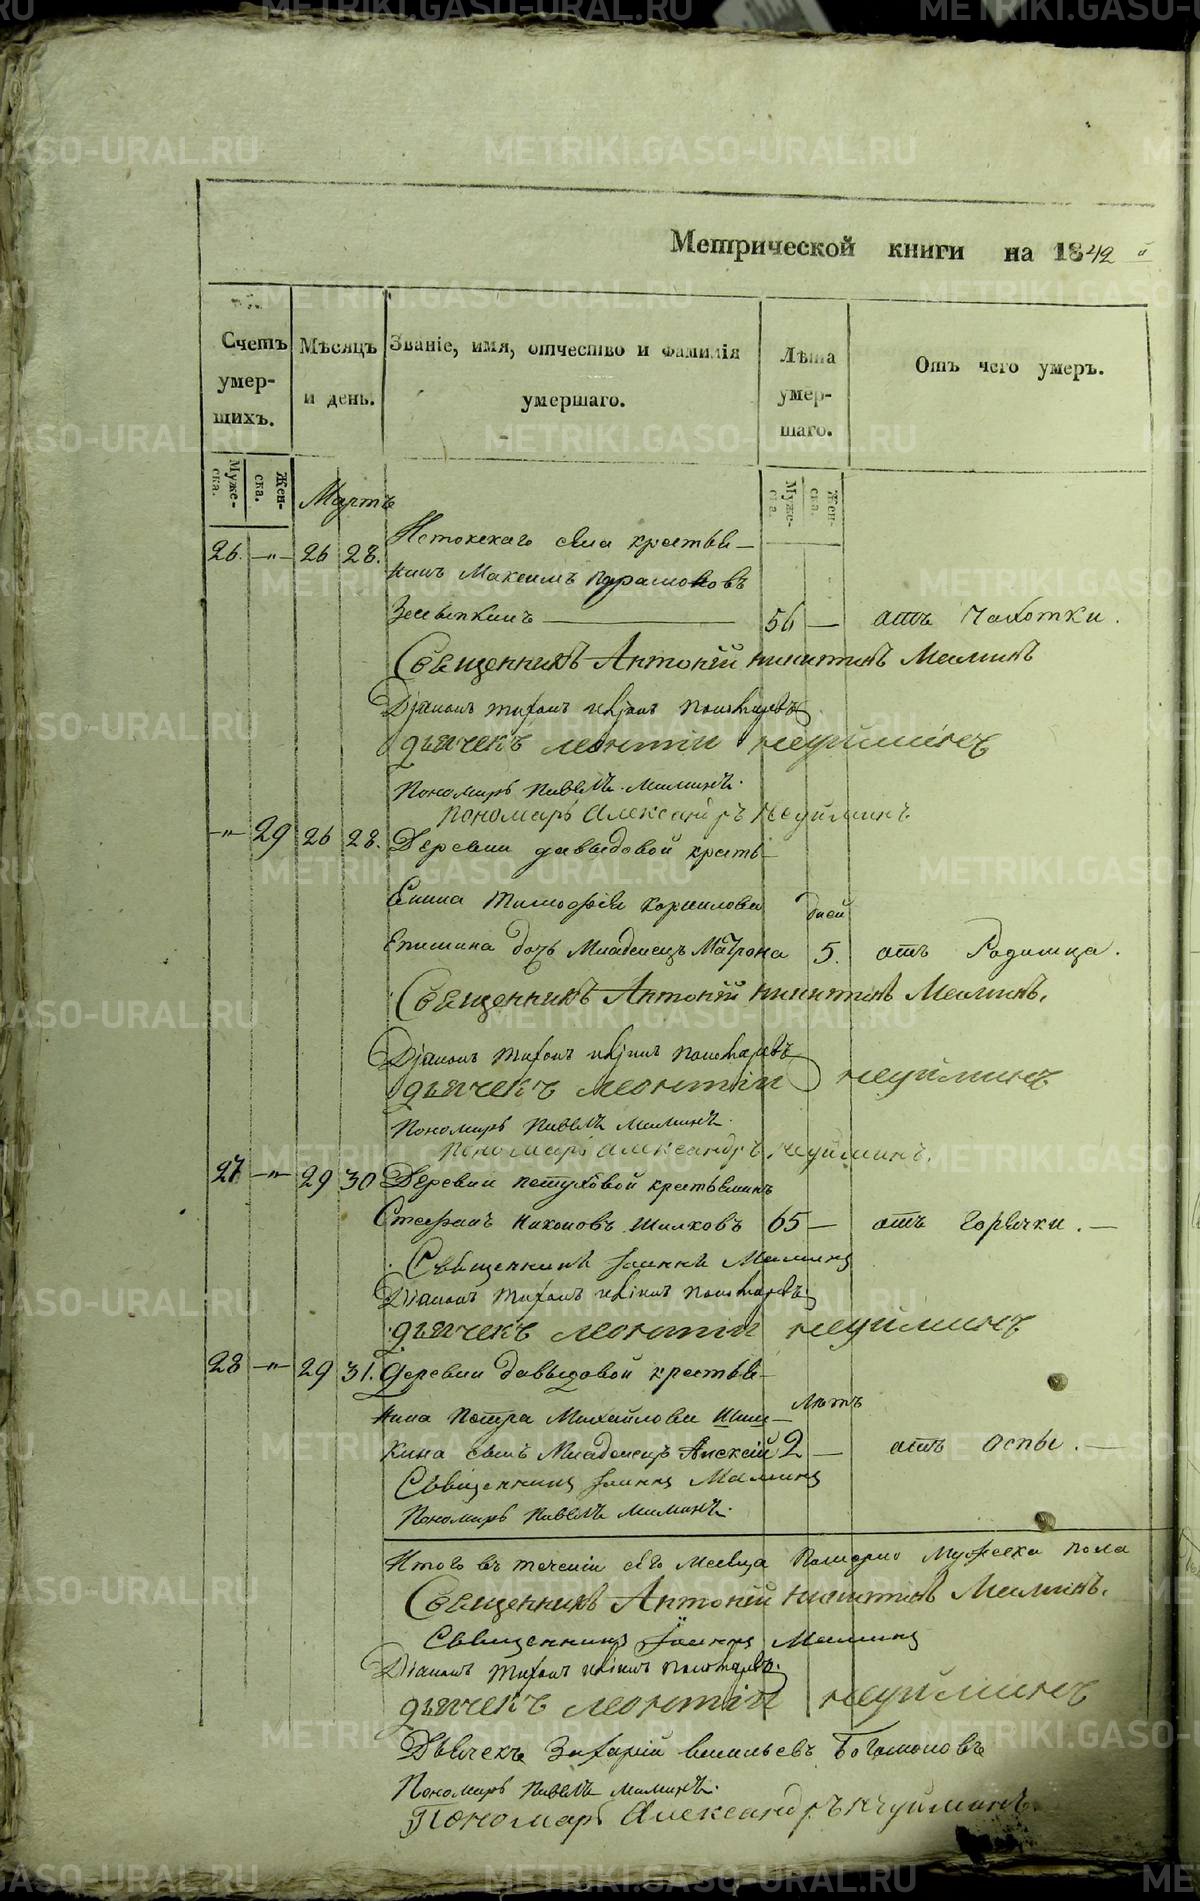 Метрической книги на 1842 й
Счетъ умер-шихъ.
Мѣсяцъ и день.
Званіе, имя, отчество и фамилія умершаго.
Лѣта умер-шаго.
Отъ чего умеръ.
Муже-ска.
Жен-ска.
Муже-ска.
Жен-ска.
Мартъ
26. —„— 26 28. Истокскаго села крестья—
нинъ Максимъ Парамоновъ
56 — отъ Чахотки.
Священникъ Антоній Никитинъ Маминъ
Діаконъ Тихонъ Пономаревъ
Дьячекъ Леонтій Неуйминъ
Пономарь Павелъ Маминъ.
Пономарь Александръ Неуйминъ
—„— 29 26 28. Деревни Давыдовой кресть—
янина Тимофѣя Корнилова дней
Епишина дочь Младенецъ Матрона 5. отъ Родимца.
Священникъ Антоній Никитинъ Маминъ.
Діаконъ Тихонъ Пономаревъ
Дьячекъ Леонтій Неуйминъ
Пономарь Павелъ Маминъ.
Пономарь Александръ Неуйминъ.
27 —„— 29 30 Деревни Петуховой крестьянинъ
Стефанъ Никоновъ Шилковъ 65 — отъ Горячки. —
Священникъ Іоаннъ Маминъ
Діаконъ Тихонъ Пономаревъ.
Дьячекъ Леонтій Неуйминъ
28 —„— 29 31. Деревни Давыдовой крестья—
нина Петра Михайлова Шиш— лѣтъ
кина сынъ Младенецъ Алексѣй 2 — отъ оспы. —
Священникъ Іоаннъ Маминъ
Пономарь Павелъ Маминъ.
Итого въ теченіи сего месяца Померло Мужеска пола
Священникъ Антоній Никитинъ Маминъ.
Священникъ Іоаннъ Маминъ
Діаконъ Тихонъ Пономаревъ.
Дьячекъ Леонтій Неуйминъ
Дьячекъ Захарій Васильевъ Богомоловъ
Пономарь Павелъ Маминъ.
Пономарь Александръ Неуйминъ.
METRIKI.GASO-URAL.RU